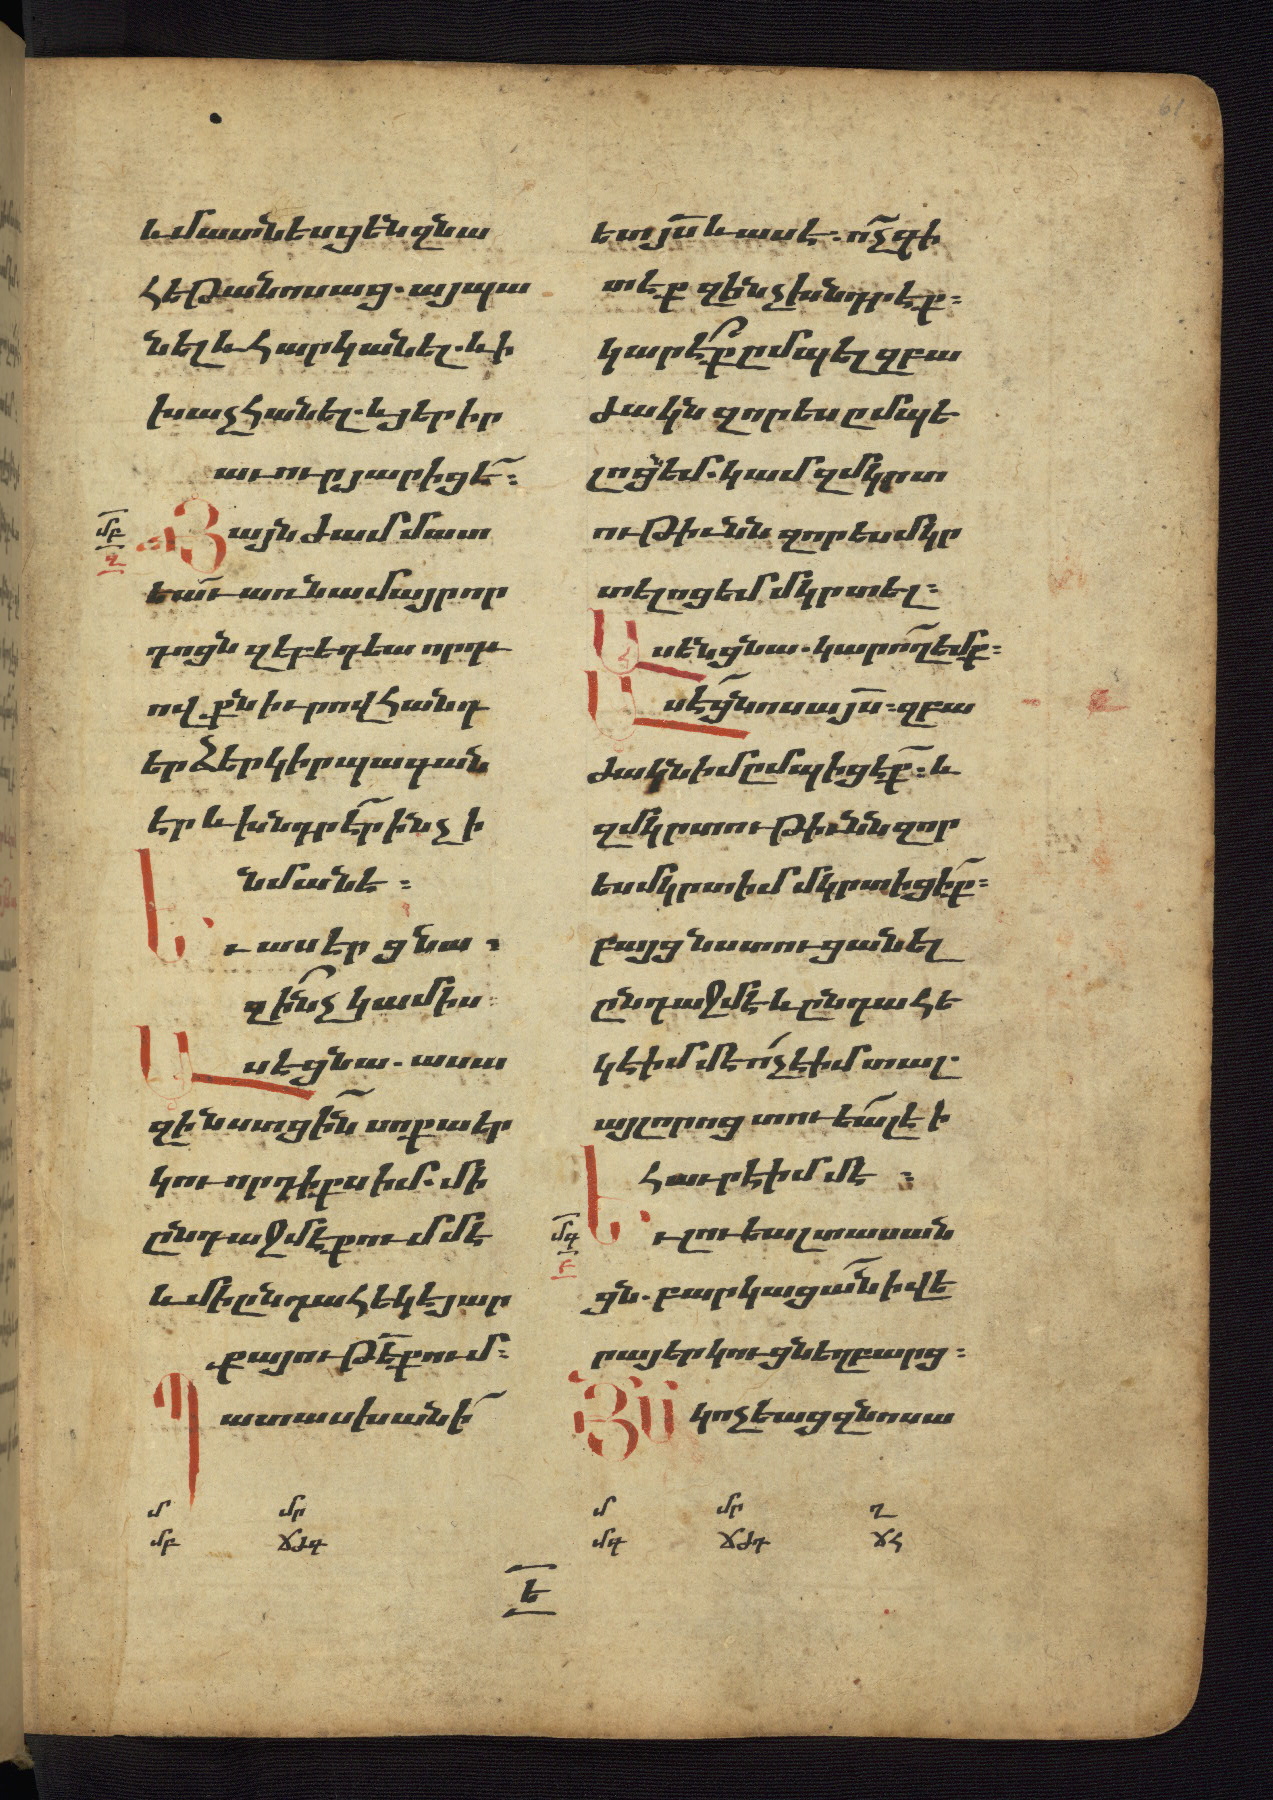 եւ մատնեսցեն զնա
հեթանոսաց. այպա
նել եւ հարկանել. եւ ի
խաչ հանել. եւ յերիր
աւուր յարիցէ՜։
Յայնժամ մատ
եաւ առ նա մայր որ
դոցն զեբեդեա որդւ
ովքն իւրովհանդ
երձ երկիր պագան
էր եւ խնդրէր ինչ ի
նմանէ։
Եւ ասէր ցնա.
զի՞նչ կամիս։
Ասէ ցնա. ասա
զի նստցին սոքա եր
կու որդիքս իմ. մի
ընդ աջմէ քումմէ
եւ մի ընդ ահեկէ յար
քայութե՜ քում։
Պատասխանի՜
ետ յս՜ եւ ասէ. ո՞չ գի
տէք զինչ խնդրէք։
կարէ՞ք ըմպել զբա
ժակն զոր ես ըմպե
լոց եմ. կամ զմկրտ
ութիւնն զոր ես մկր
տելոց եմ մկրտել։
Ասեն ցնա. կարող եմք։
Ասէ ցնոսա յս՜։ զբա
ժակն իմ ըմպիցէք՜։ եւ
զմկրտութիւնն զոր
ես մկրտիմ մկրտիցիք՜։
բայց նստուցանել
ընդ աջմէ եւ ընդ ահե
կէ իմմէ ո՛չ է իմ տալ.
այլ որոց տուեալ է ի
հաւրէ իմմէ։
Եւ լուեալ տասան
ցն. բարկացան ի վե
րայ երկուց եղբարց։
Յս կոչեաց զնոսա
մբ
զ
մգ
բ
մ մր
մբ ճժգ
մ մր ղ
մգ ճժդ ճհ
ե
61